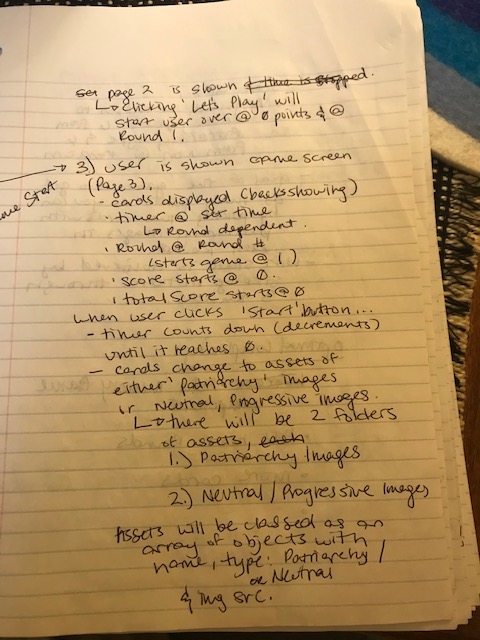 set page 2 is shown & time is stopped.
↳ Clicking 'Let's Play' will
start user over @ 0 points & @
Round 1.
→ 3) user is shown game screen
(Page 3).
me start
- cards displayed (backs showing)
· timer @ set time
↳ Round dependent.
· Round @ Round #
(starts game @ 1)
· score starts @ 0.
· total score starts @ 0
when user clicks 'start' button...
- timer counts down (decrements)
until it reaches 0.
- cards change to assets of
either 'Patriarchy' images
or Neutral, Progressive images.
↳ there will be 2 folders
of assets, each
1.) Patriarchy Images
2.) Neutral / Progressive Images
Assets will be classed as an
array of objects with
name, type: Patriarchy /
or Neutral
& img src.